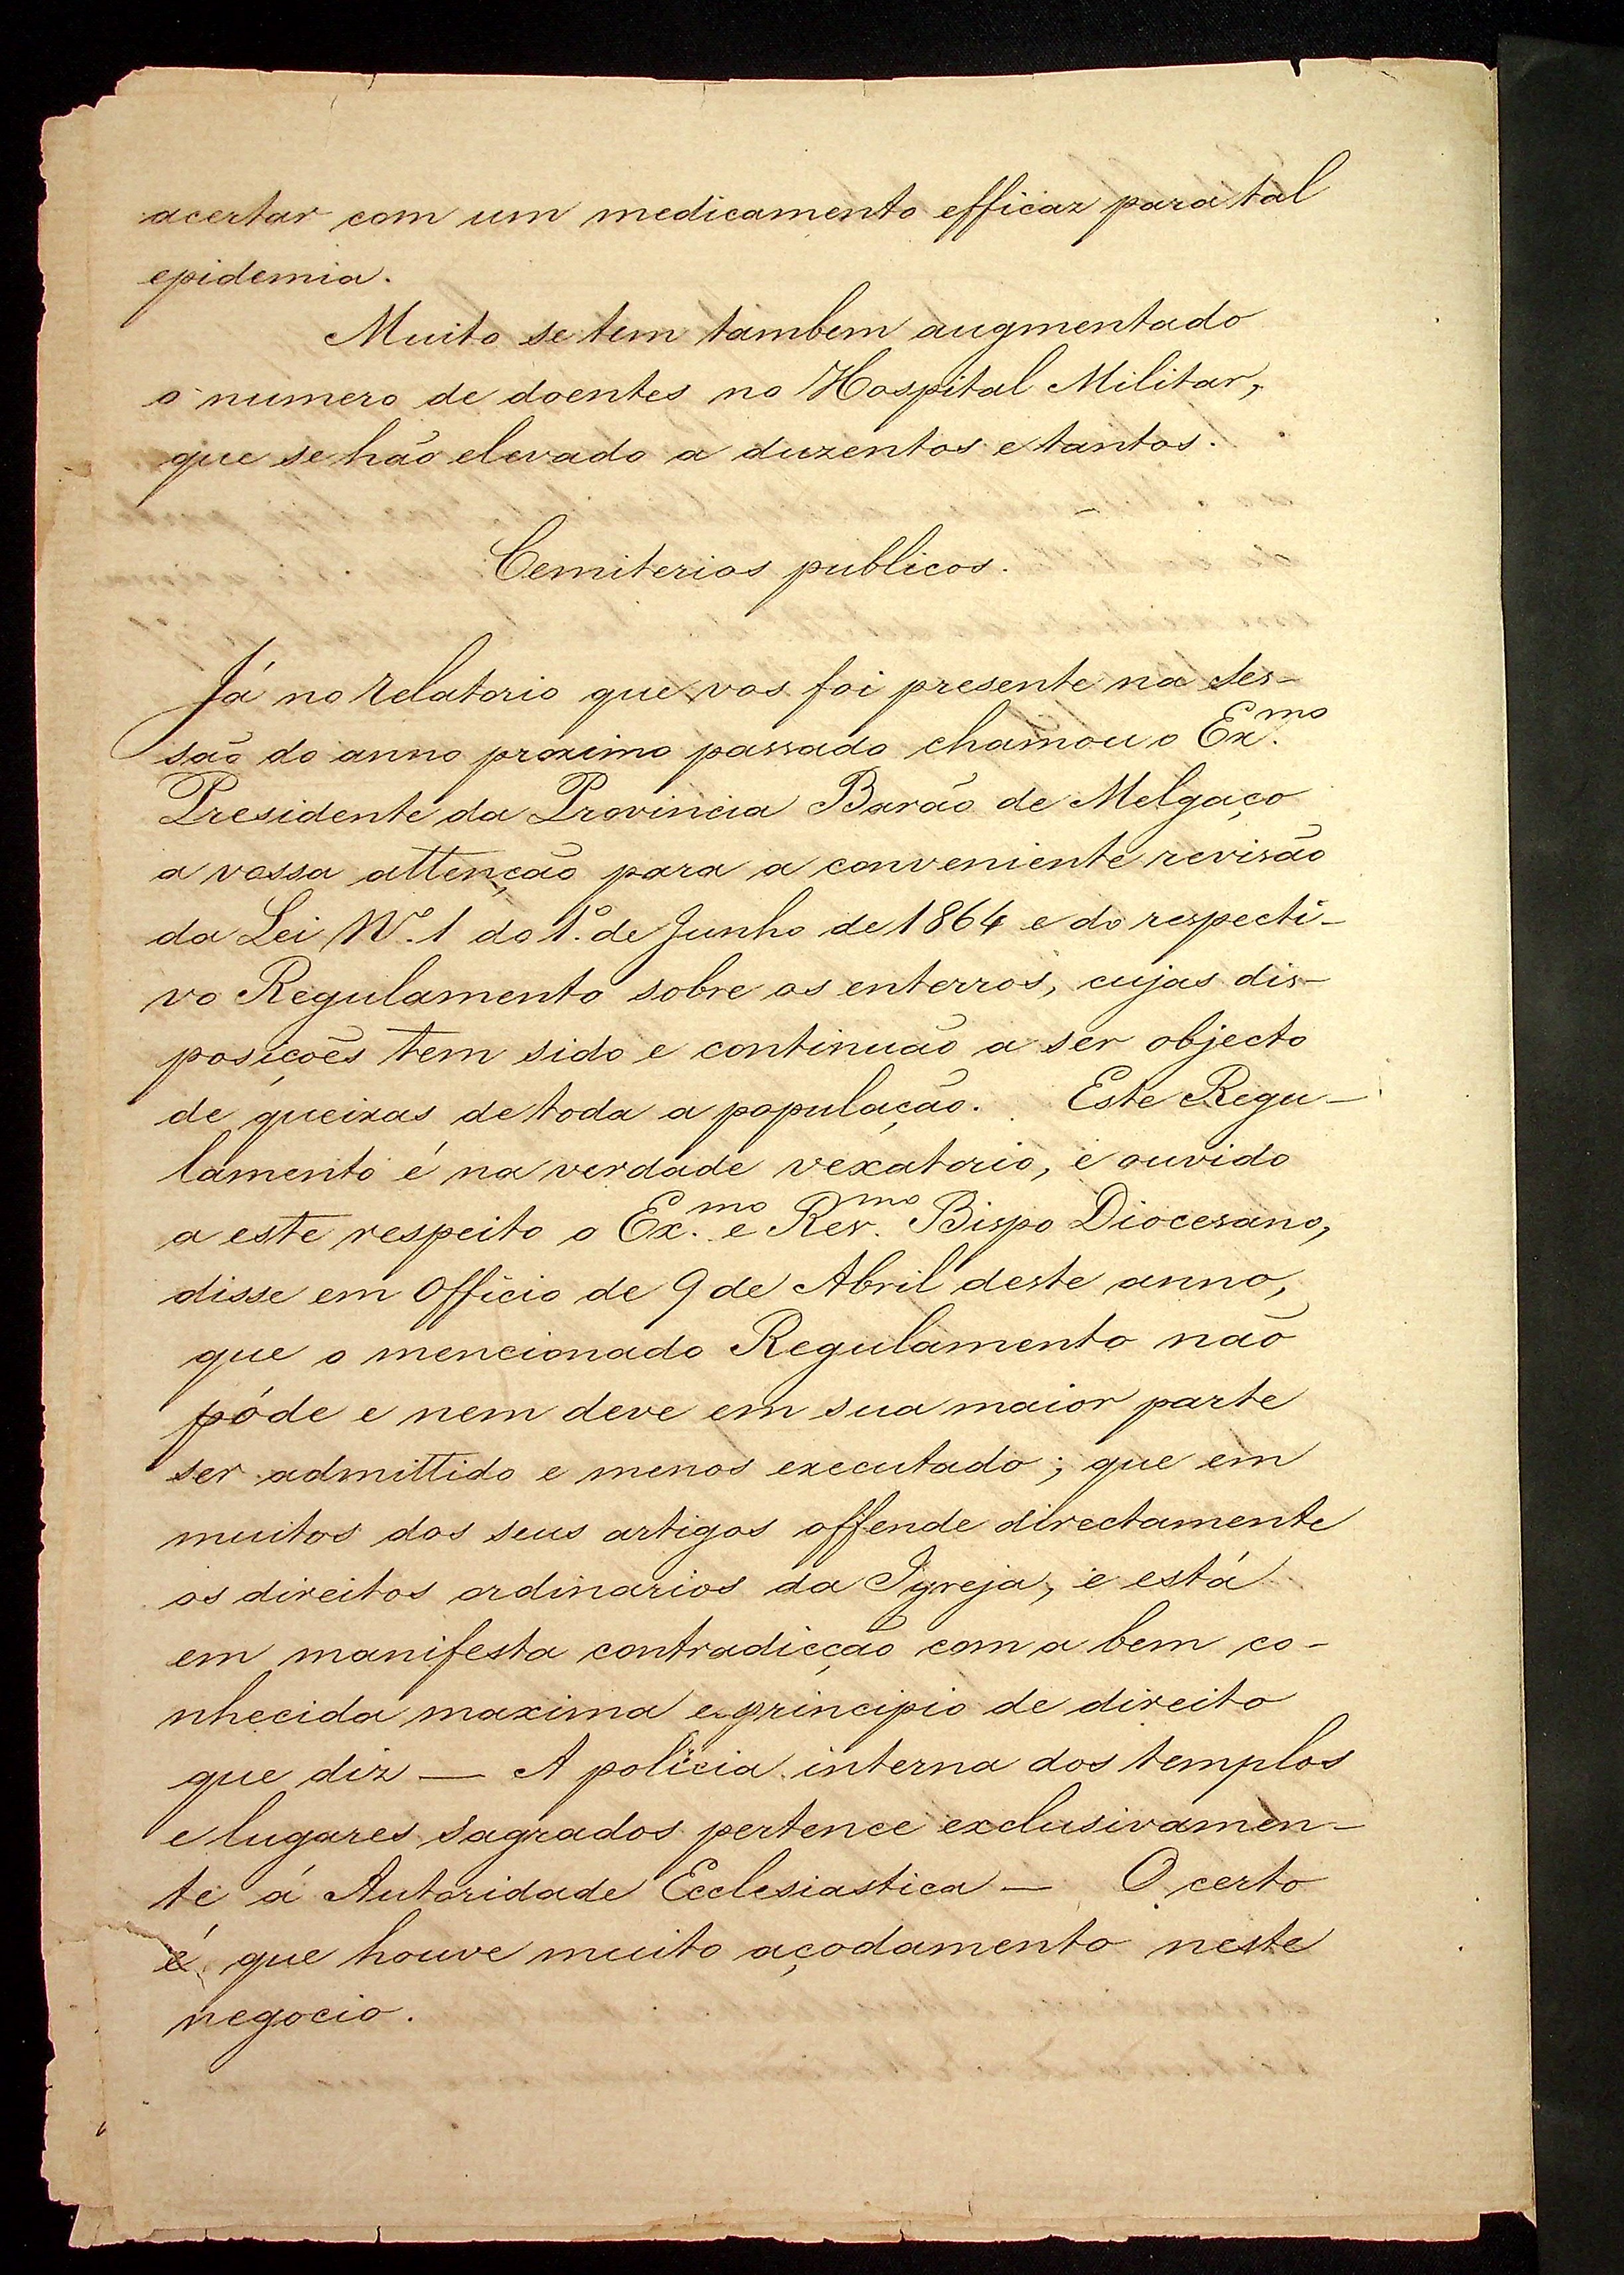 acertar com um medicamento efficaz para tal
epidemia.
Muito se tem tambem augmentado
o numero de doentes no Hospital Militar,
que se hão elevado a duzentos e tantos.
Cemiterios publicos.
Já no relatorio que vos foi presente na ses-
são do anno proximo passado chamou o Ex.mo
Presidente da Provincia Barão de Melgaço
a vossa attenção para a conveniente revisão
da Lei Nº. 1 do 1º. de Junho de 1864 e do respecti-
vo Regulamento sobre os enterros, cujas dis-
posições tem sido e continuão a ser objecto
de queixas de toda a população. Este Regu-
lamento é na verdade vexatorio, e ouvido
a este respeito o Ex.mo e Rev.mo Bispo Diocesano,
disse em Officio de 9 de Abril deste anno,
que o mencionado Regulamento não
póde e nem deve em sua maior parte
ser admittido e menos executado; que em
muitos dos seus artigos offende directamente
os direitos ordinarios da Igreja, e está
em manifesta contradicção com a bem co-
nhecida maxima e principio de direito
que diz — A policia interna dos templos
e lugares sagrados pertence exclusivamen-
te á Autoridade Ecclesiastica — O certo
é que houve muito açodamento neste
negocio.